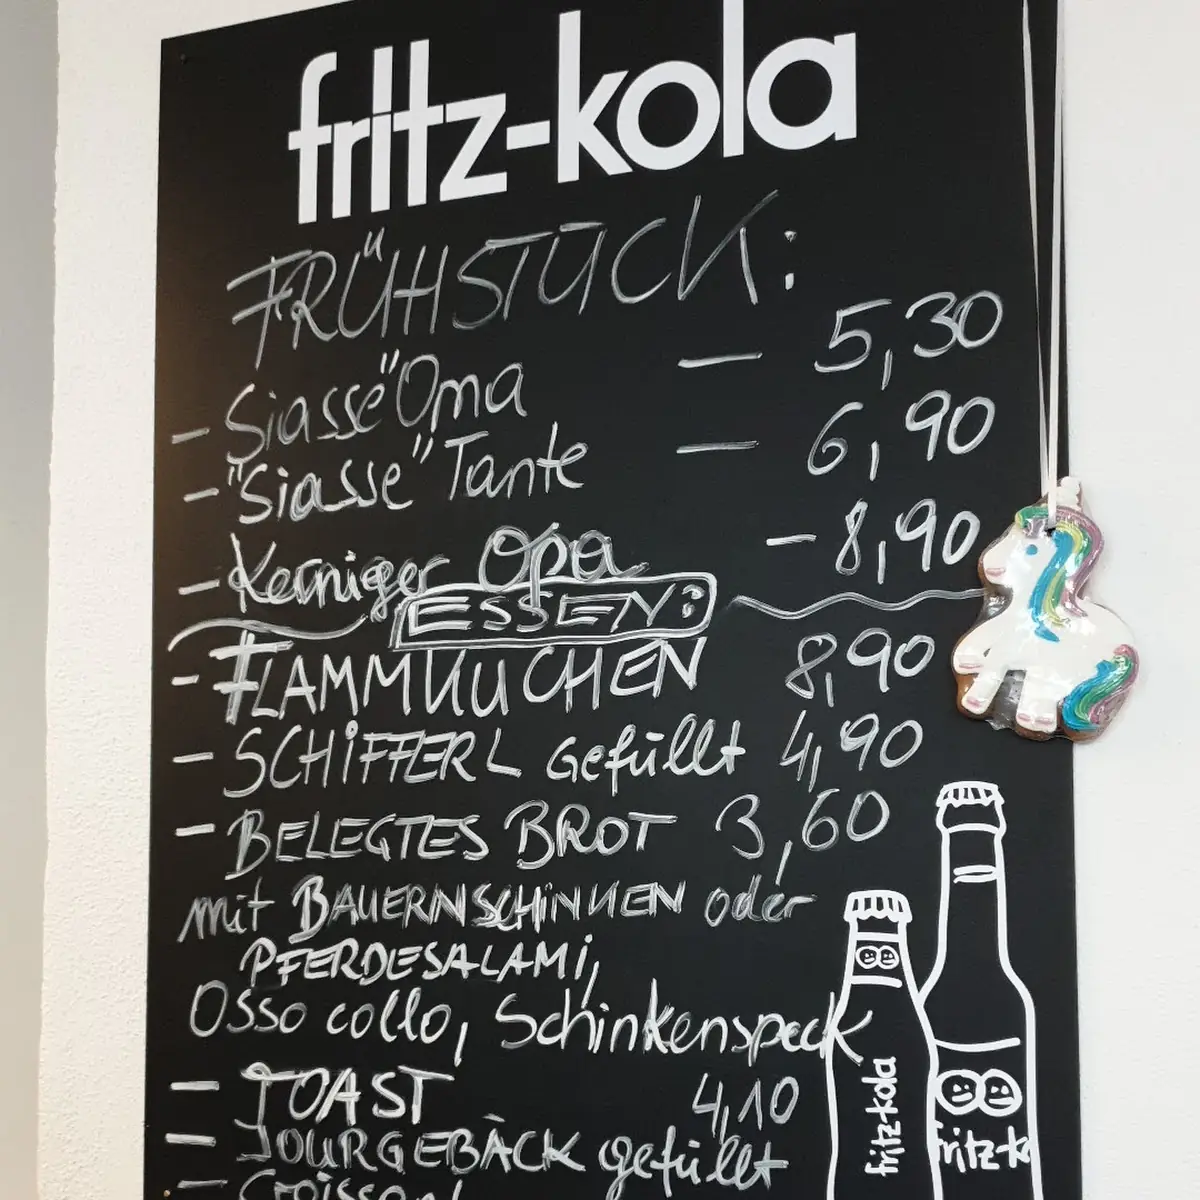 fritz-kola
FRÜHSTÜCK:
- Siasse" Oma — 5,30
- "Siasse" Tante — 6,90
- Kerniger Opa - 8,90
ESSEN:
- FLAMMKUCHEN 8,90
- SCHIFFERL gefüllt 4,90
- BELEGTES BROT 3,60
mit BAUERNSCHINKEN oder
PFERDESALAMI,
Osso collo, Schinkenspeck
- TOAST 4,10
- JOURGEBÄCK gefüllt
- Croissant
fritz-kola
fritz-k